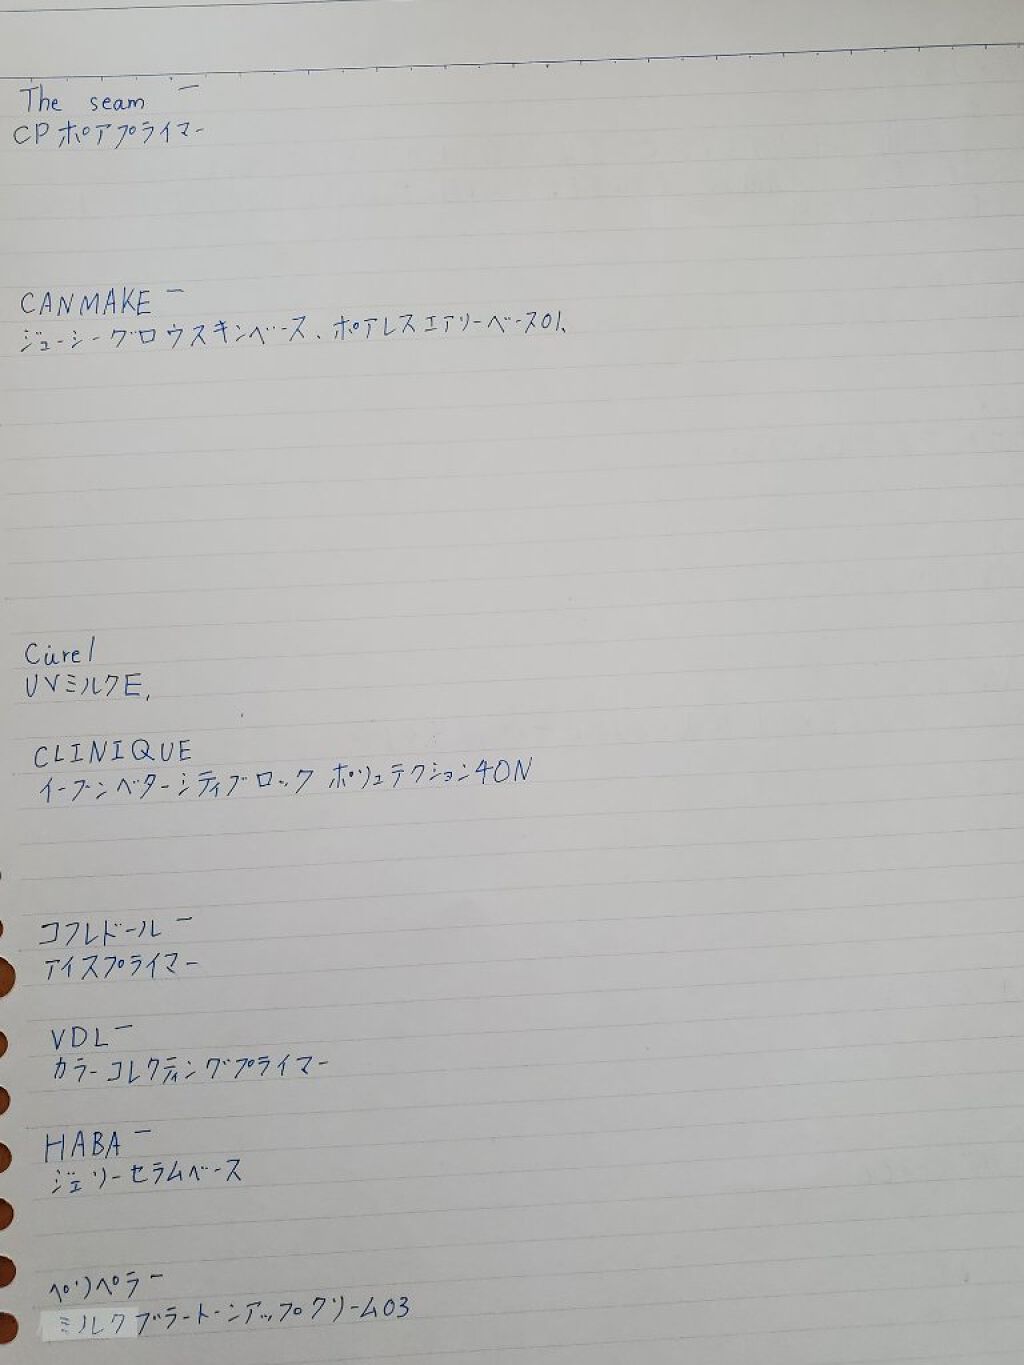 The seam ー
CPポアプライマー
CANMAKE ー
ジューシーグロウスキンベース、ポアレスエアリーベース01、
Curel
UVミルクE,
CLINIQUE
イーブンベターシティブロック ポリュテクション40N
コフレドール ー
アイスプライマー
VDLー
カラーコレクティングプライマー
HABA ー
ジェリーセラムベース
ペリペラ ー
ミルクブラートーンアップクリーム03